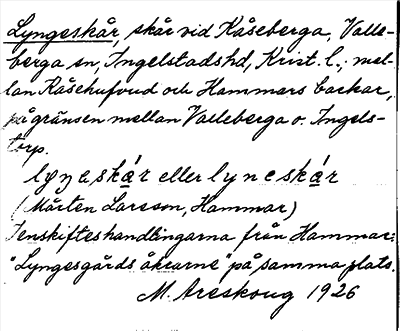 Lyngeskår, skår vid Kåseberga, Valle-
berga sn, Ingelstads hd, Krist. l.; mel-
lan Kåsehufvud och Hammars backar,
på gränsen mellan Valleberga o. Ingels-
torp.
lyŋəskár eller lyneskár
(Mårten Larsson, Hammar)
I enskifteshandlingarna från Hammar:
"Lyngesgårds åkrarne" på samma plats.
M. Areskoug 1926